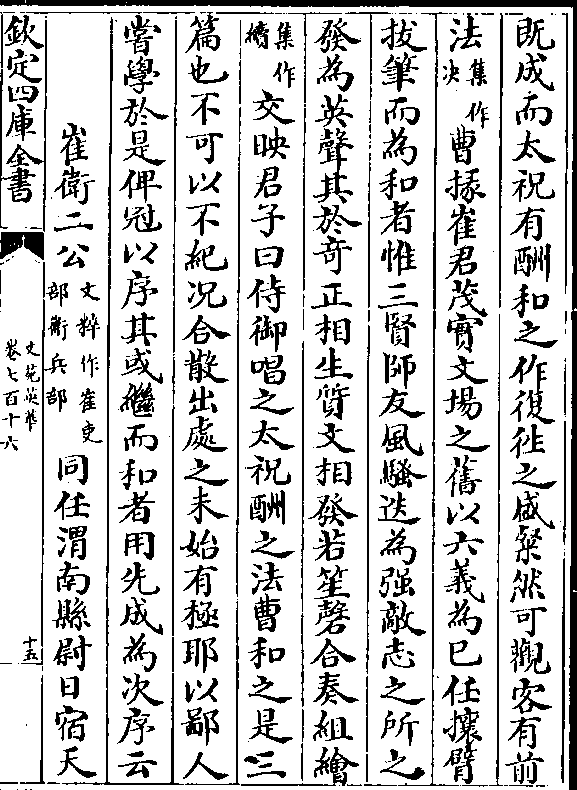 既成而太祝有酬和之作復徃之盛粲然可觀客有前
法集作決曹掾崔君茂實文場之舊以六義為已任攘臂
拔筆而為和者惟三賢師友風騷迭為强敵志之所之
發為英聲其於竒正相生質文相發若笙磬合奏組繪
集作繢交映君子曰侍御唱之太祝酬之法曹和之是三
篇也不可以不紀况合散出處之未始有極耶以鄙人
嘗學於是俾冠以序其或繼而和者用先成為次序云
崔衛二公文粹作崔吏部衛兵部同任渭南縣尉日宿天
欽定四庫全書
文苑英華
卷七百十六
十五